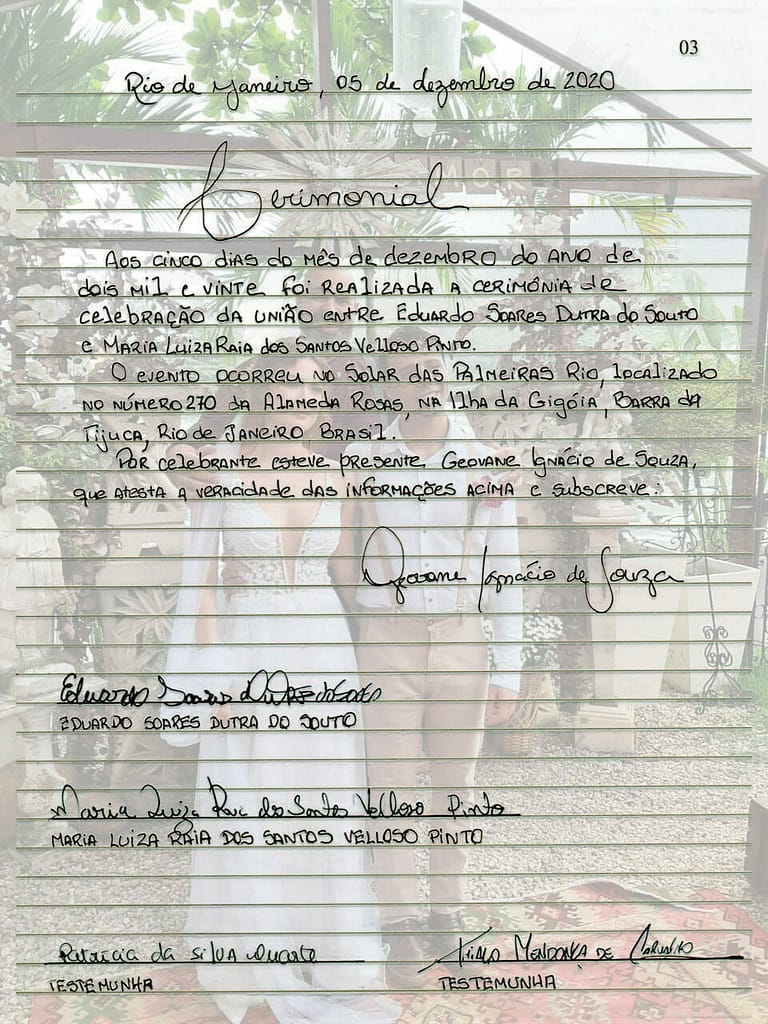 03
Rio de Janeiro, 05 de dezembro de 2020
AMOR
Cerimonial
Aos cinco dias do mês de dezembro do ano de
dois mil e vinte foi realizada a cerimônia de
celebração da união entre Eduardo Soares Dutra do Souto
e Maria Luiza Raia dos Santos Velloso Pinto.
O evento ocorreu no Solar das Palmeiras Rio, localizado
no número 270 da Alameda Rosas, na Ilha da Gigóia, Barra da
Tijuca, Rio de Janeiro, Brasil.
Por celebrante esteve presente Geovane Ignácio de Souza,
que atesta a veracidade das informações acima e subscreve:
Geovane Ignácio de Souza
Eduardo Soares Dutra do Souto
EDUARDO SOARES DUTRA DO SOUTO
Maria Luiza Raia dos Santos Velloso Pinto
MARIA LUIZA RAIA DOS SANTOS VELLOSO PINTO
Patricia da Silva Duarte
Thiago Mendonça de Carvalho
TESTEMUNHA
TESTEMUNHA